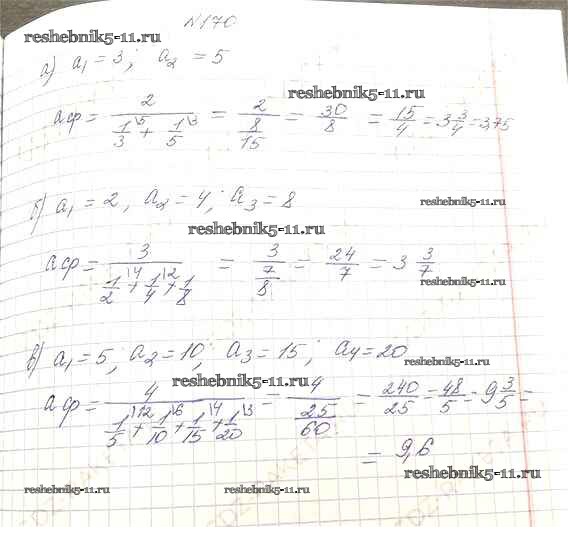 №170
reshebnik5-11.ru
а) a₁ = 3; a₂ = 5
reshebnik5-11.ru
aф = 2 / (1/3\5 + 1/5\3) = 2 / (8/15) = 30/8 = 15/4 = 3 3/4 = 3,75
б) a₁ = 2, a₂ = 4; a₃ = 8
reshebnik5-11.ru
reshebnik5-11.ru
aф = 3 / (1/2\4 + 1/4\2 + 1/8) = 3 / (7/8) = 24/7 = 3 3/7
в) a₁ = 5; a₂ = 10; a₃ = 15; a₄ = 20
reshebnik5-11.ru
reshebnik5-11.ru
aф = 4 / (1/5\12 + 1/10\6 + 1/15\4 + 1/20\3) = 4 / (25/60) = 240/25 = 48/5 = 9 3/5 =
= 9,6
reshebnik5-11.ru
reshebnik5-11.ru
reshebnik5-11.ru